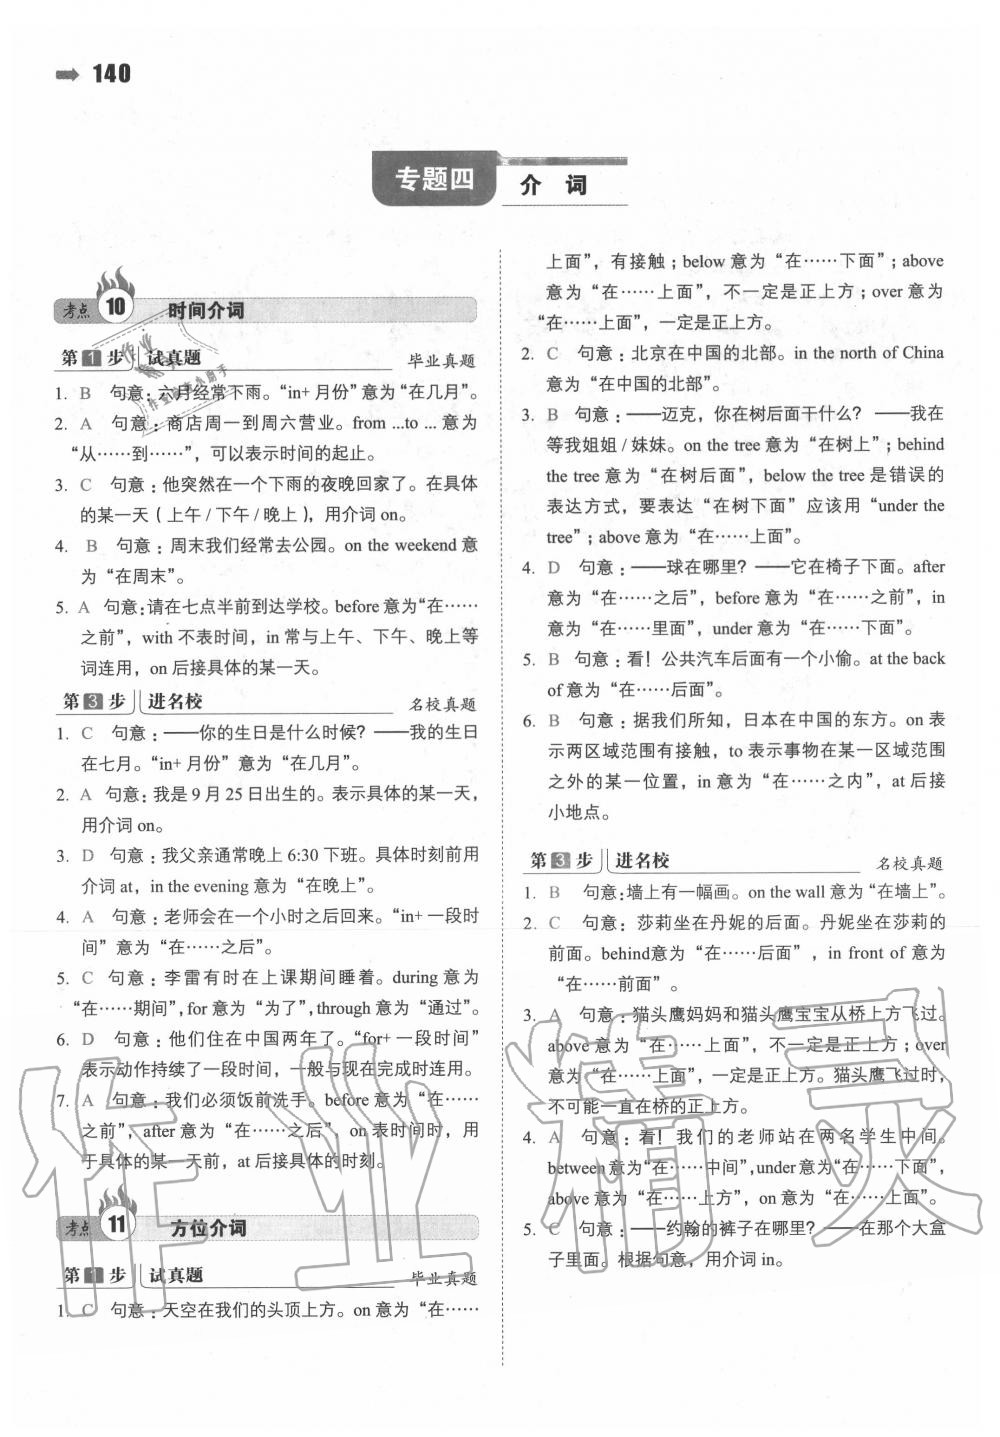 140
专题四 介 词
考点 10 时间介词
第1步 试真题 毕业真题
1. B 句意：六月经常下雨。“in+ 月份”意为“在几月”。
2. A 句意：商店周一到周六营业。from ...to ... 意为
“从……到……”，可以表示时间的起止。
3. C 句意：他突然在一个下雨的夜晚回家了。在具体
的某一天（上午 / 下午 / 晚上），用介词 on。
4. B 句意：周末我们经常去公园。on the weekend 意
为“在周末”。
5. A 句意：请在七点半前到达学校。before 意为“在……
之前”，with 不表时间，in 常与上午、下午、晚上等
词连用，on 后接具体的某一天。
第3步 进名校 名校真题
1. C 句意：——你的生日是什么时候？——我的生日
在七月。“in+ 月份”意为“在几月”。
2. A 句意：我是 9 月 25 日出生的。表示具体的某一天，
用介词 on。
3. D 句意：我父亲通常晚上 6:30 下班。具体时刻前用
介词 at，in the evening 意为“在晚上”。
4. A 句意：老师会在一个小时之后回来。“in+ 一段时
间”意为“在……之后”。
5. C 句意：李雷有时在上课期间睡着。during 意为
“在……期间”，for 意为“为了”，through 意为“通过”。
6. D 句意：他们住在中国两年了。“for+ 一段时间”
表示动作持续了一段时间，一般与现在完成时连用。
7. A 句意：我们必须饭前洗手。before 意为“在……
之前”，after 意为“在……之后”，on 表时间时，用
于具体的某一天前，at 后接具体的时刻。
考点 11 方位介词
第1步 试真题 毕业真题
1. C 句意：天空在我们的头顶上方。on 意为“在……
上面”，有接触；below 意为“在……下面”；above
意为“在……上面”，不一定是正上方；over 意为
“在……上面”，一定是正上方。
2. C 句意：北京在中国的北部。in the north of China
意为“在中国的北部”。
3. B 句意：——迈克，你在树后面干什么？ ——我在
等我姐姐 / 妹妹。on the tree 意为“在树上”；behind
the tree 意为“在树后面”，below the tree 是错误的
表达方式，要表达“在树下面”应该用“under the
tree”；above 意为“在……上面”。
4. D 句意：——球在哪里？——它在椅子下面。after
意为“在……之后”，before 意为“在……之前”，in
意为“在……里面”，under 意为“在……下面”。
5. B 句意：看！公共汽车后面有一个小偷。at the back
of 意为“在……后面”。
6. B 句意：据我们所知，日本在中国的东方。on 表
示两区域范围有接触，to 表示事物在某一区域范围
之外的某一位置，in 意为“在……之内”，at 后接
小地点。
第3步 进名校 名校真题
1. B 句意：墙上有一幅画。on the wall 意为“在墙上”。
2. C 句意：莎莉坐在丹妮的后面。丹妮坐在莎莉的
前面。behind意为“在……后面”，in front of 意为
“在……前面”。
3. A 句意：猫头鹰妈妈和猫头鹰宝宝从桥上方飞过。
above 意为“在……上面”，不一定是正上方；over
意为“在……上面”，一定是正上方。猫头鹰飞过时，
不可能一直在桥的正上方。
4. A 句意：看！我们的老师站在两名学生中间。
between 意为“在……中间”，under 意为“在……下面”，
above 意为“在……上方”，on 意为“在……上面”。
5. C 句意：——约翰的裤子在哪里？——在那个大盒
子里面。根据句意，用介词 in。
作业精灵